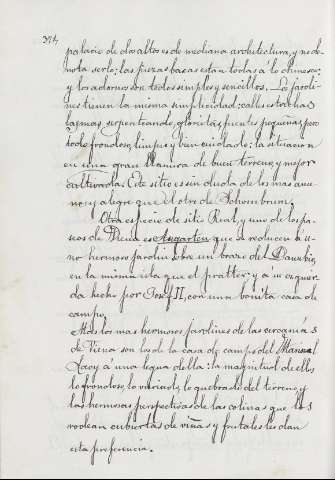 374
palacio de dos altos es de mediana architectura, y no de-
nota serlo: las piezas bacas estan todas a lo chinesco:
y los adornos son todos simples y sencillos. Los jardi-
nes tienen la misma simplicidad: calles estrechas
lagunas serpenteando, glorietas, fuentes pequeñas, pero
todo frondoso, limpio y bien cuidado: la situacion
en una gran llanura de buen terreno y mejor
cultivada. Este sitio es sin duda de los mas ame-
no y alegre que el otro de Schoenbrunn.
Otra especie de sitio Real, y uno de los pa-
seos de Viena es Augarten que se reducen à u-
no hermoso jardin sobre un brazo del Danubio,
en la misma isla que el pratter y a su izquier-
da hecho por Josef II, con una bonita casa de
campo.
Mas los mas hermosos jardines de las cercanias
de Viena son los de la casa de campo del Mariscal
Lacy à una legua de ella: la magnitud de ellos
lo frondoso, lo variado, lo quebrado del terreno, y
las hermosas perspectivas de las colinas que los
rodean cubiertas de viñas y frutales les dan
esta preferencia.